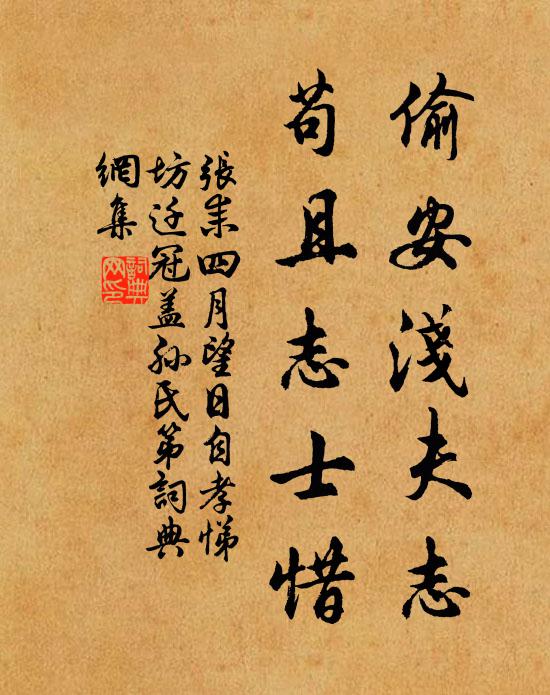 偷安淺夫志
苟且志士惜
張耒四月望日自孝悌
坊迁冠盖孙氏第詞典
網集
詞典網印